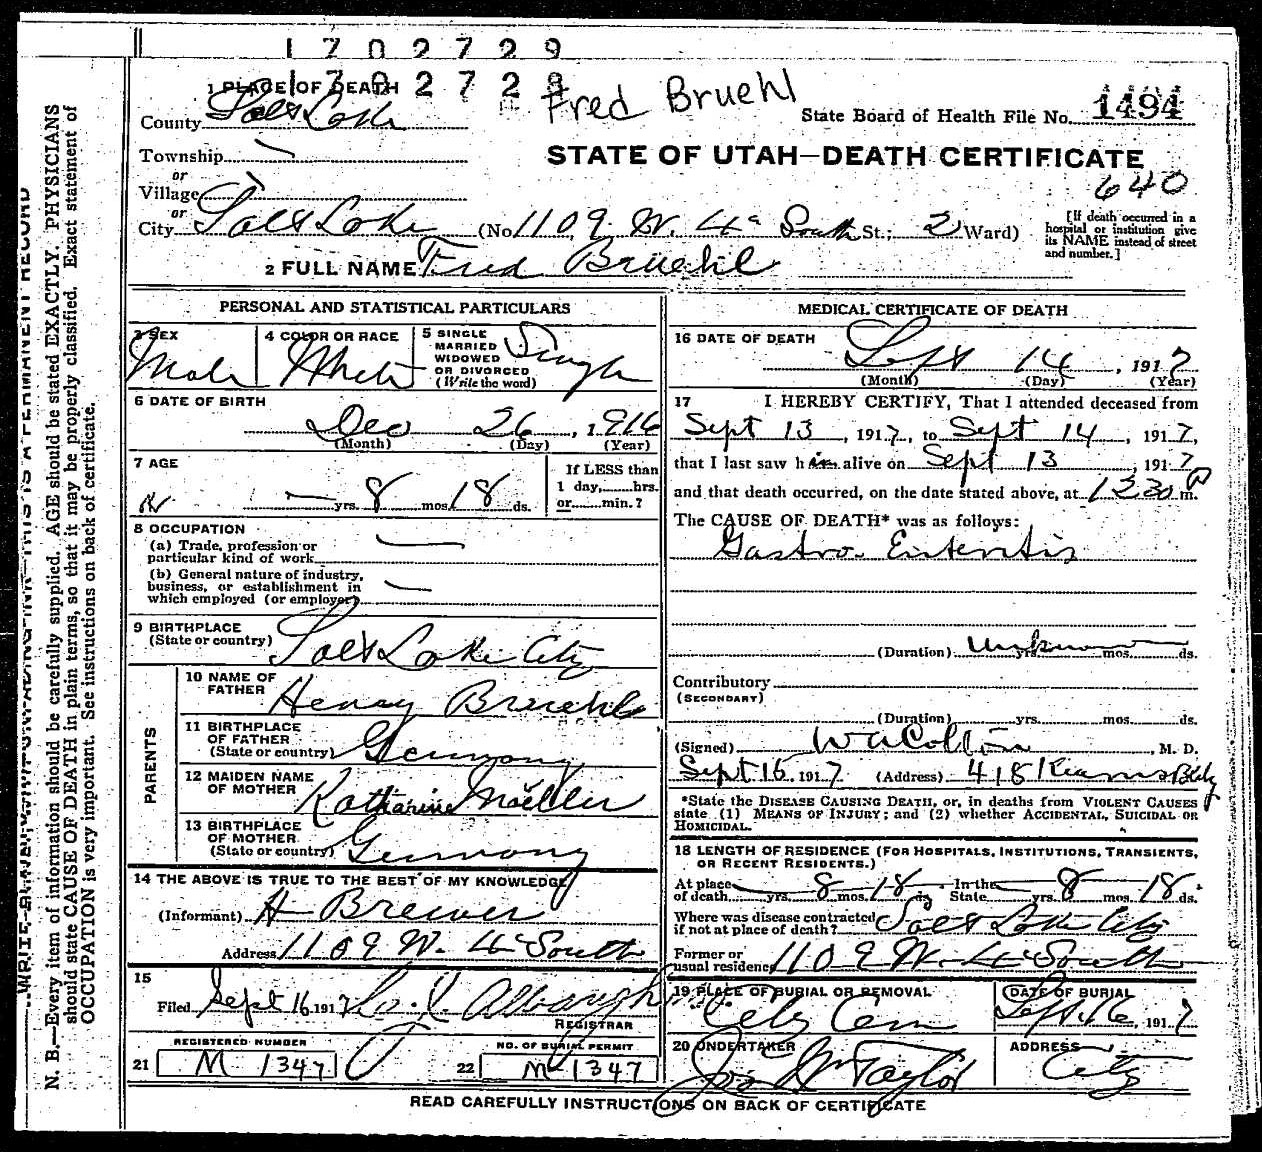 1702729
1702729
1 PLACE OF DEATH
Fred Bruehl
County Salt Lake
State Board of Health File No. 1494
Township
STATE OF UTAH—DEATH CERTIFICATE
or
Village
640
or
City Salt Lake (No 1109 W. 4th South St.; 2 Ward)
[If death occurred in a hospital or institution give its NAME instead of street and number.]
2 FULL NAME Fred Bruehl
PERSONAL AND STATISTICAL PARTICULARS
3 SEX Male
4 COLOR OR RACE White
5 SINGLE MARRIED WIDOWED OR DIVORCED (Write the word) Single
6 DATE OF BIRTH
Dec 26, 1916
(Month) (Day) (Year)
7 AGE
— yrs. 8 mos. 18 ds.
If LESS than 1 day, hrs. or min.?
8 OCCUPATION
(a) Trade, profession or particular kind of work —
(b) General nature of industry, business, or establishment in which employed (or employer) —
9 BIRTHPLACE
(State or country) Salt Lake City
PARENTS
10 NAME OF FATHER Henry Bruehl
11 BIRTHPLACE OF FATHER (State or country) Germany
12 MAIDEN NAME OF MOTHER Katharine Moeller
13 BIRTHPLACE OF MOTHER (State or country) Germany
14 THE ABOVE IS TRUE TO THE BEST OF MY KNOWLEDGE
(Informant) H Brewer
Address 1109 W. 4th South
15
Filed Sept 16 1917
REGISTRAR
REGISTERED NUMBER
21 M 1347
NO. OF BURIAL PERMIT
22 M 1347
MEDICAL CERTIFICATE OF DEATH
16 DATE OF DEATH
Sept 14, 1917
(Month) (Day) (Year)
17 I HEREBY CERTIFY, That I attended deceased from
Sept 13, 1917, to Sept 14, 1917,
that I last saw him alive on Sept 13, 1917
and that death occurred, on the date stated above, at 1230 P m.
The CAUSE OF DEATH* was as follows:
Gastro-Enteritis
(Duration) Unknown yrs. mos. ds.
Contributory
(SECONDARY)
(Duration) yrs. mos. ds.
(Signed) , M. D.
Sept 15, 1917 (Address) 418 Kearns Bldg
*State the DISEASE CAUSING DEATH, or, in deaths from VIOLENT CAUSES state (1) MEANS OF INJURY; and (2) whether ACCIDENTAL, SUICIDAL OR HOMICIDAL.
18 LENGTH OF RESIDENCE (FOR HOSPITALS, INSTITUTIONS, TRANSIENTS, OR RECENT RESIDENTS.)
At place of death — yrs. 8 mos. 18 ds. In the State — yrs. 8 mos. 18 ds.
Where was disease contracted if not at place of death? Salt Lake City
Former or usual residence 1109 W. 4th South
19 PLACE OF BURIAL OR REMOVAL City Cem
DATE OF BURIAL Sept. 16, 1917
20 UNDERTAKER Taylor
ADDRESS City
READ CAREFULLY INSTRUCTIONS ON BACK OF CERTIFICATE
WRITE PLAINLY, WITH UNFADING INK—THIS IS A PERMANENT RECORD
N. B.—Every item of information should be carefully supplied. AGE should be stated EXACTLY. PHYSICIANS
should state CAUSE OF DEATH in plain terms, so that it may be properly classified. Exact statement of
OCCUPATION is very important. See instructions on back of certificate.